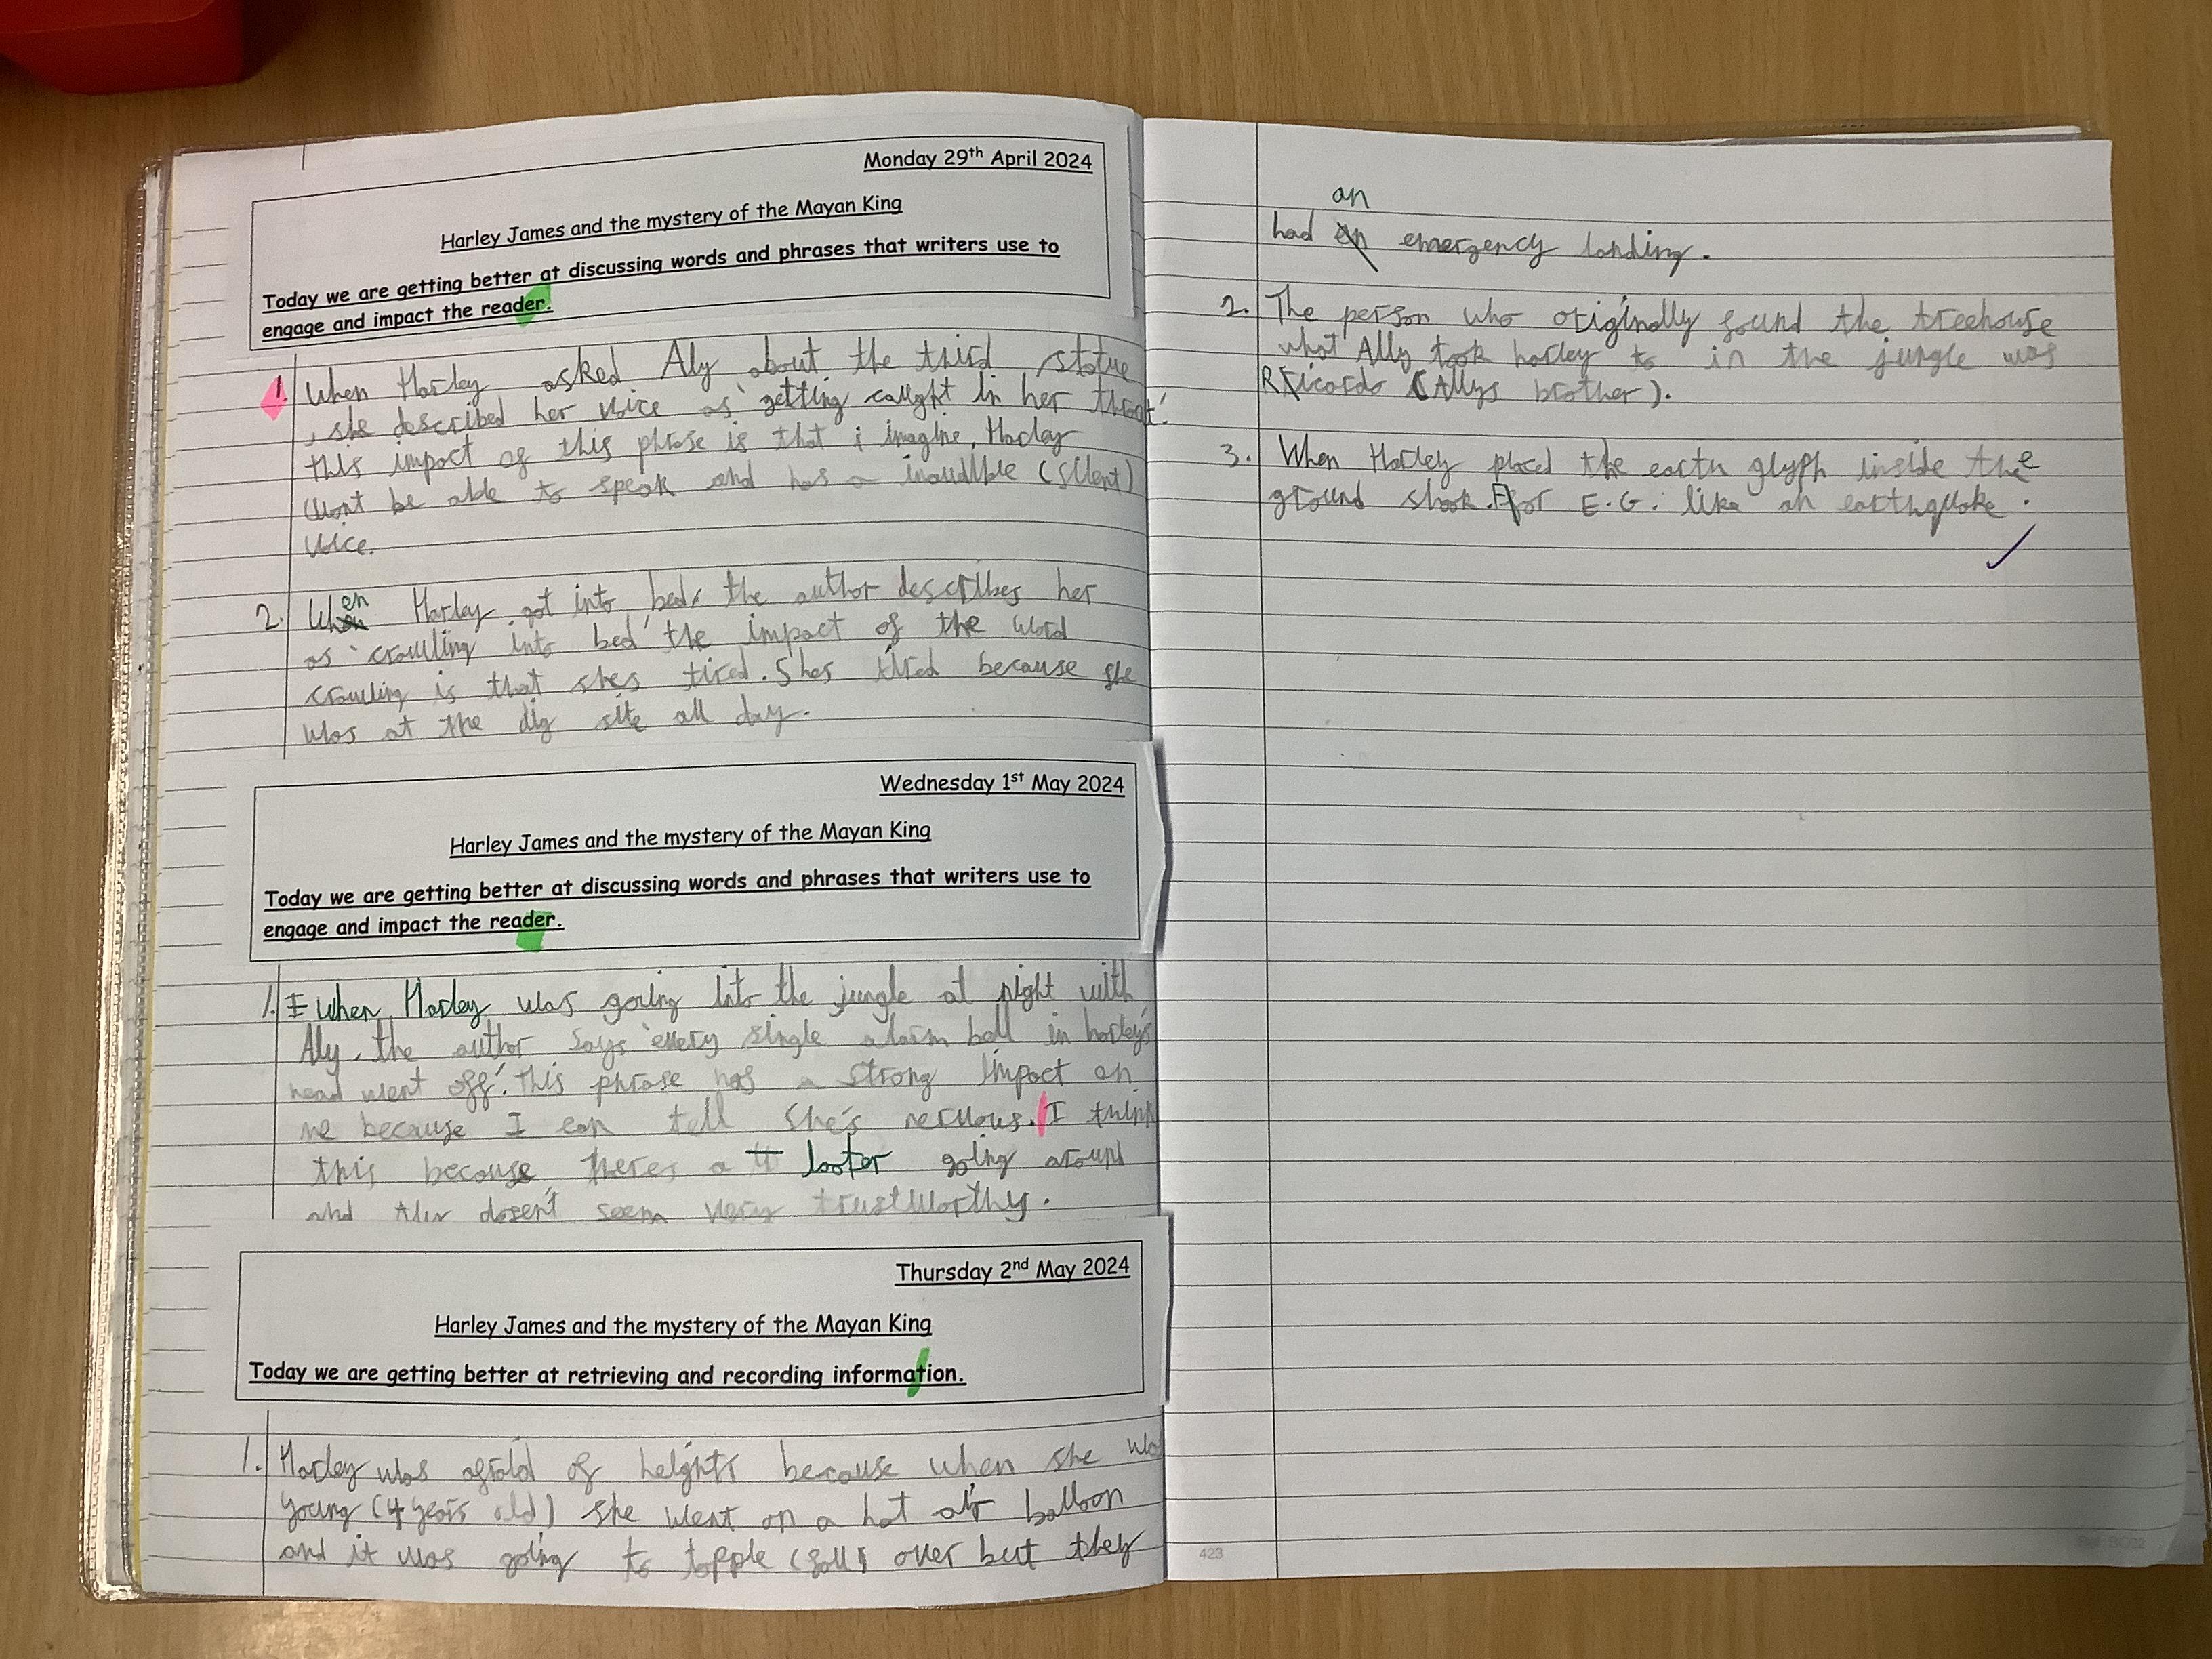 Monday 29th April 2024
Harley James and the mystery of the Mayan King
Today we are getting better at discussing words and phrases that writers use to
engage and impact the reader.
1. When Harley asked Aly about the third statue
, she described her voice as 'getting caught in her throat'.
this impact of this phrase is that i imagine, Harley
wont be able to speak and has a inaudible (silent)
voice.
2. When Harley got into bed, the author describes her
as 'crawlling into bed' the impact of the word
crawling is that shes tired. Shes tired because she
was at the dig site all day.
Wednesday 1st May 2024
Harley James and the mystery of the Mayan King
Today we are getting better at discussing words and phrases that writers use to
engage and impact the reader.
1. I when Harley was going into the jungle at night with
Aly, the author says 'every single alarm bell in harley's
head went off'. This phrase has a strong impact on
me because I can tell she's nervous. I think
this because theres a tt looter going around
and doesen't seem very trustworthy.
Thursday 2nd May 2024
Harley James and the mystery of the Mayan King
Today we are getting better at retrieving and recording information.
1. Harley was afraid of heights because when she was
young (4 years old) she went on a hot air balloon
and it was going to topple (fall) over but they
an
had an emergency landing.
2. The person who originally found the treehouse
what Ally took harley to in the jungle was
Ricardo (Allys brother).
3. When Harley placed the earth glyph inside the
ground shook. For E.G. like an earthquake.
423